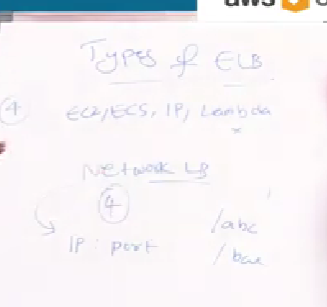 aws
Types of ELB
4 EC2/ECS, IP, Lambda
x
Network LB
4
IP : port
/abc
/bar